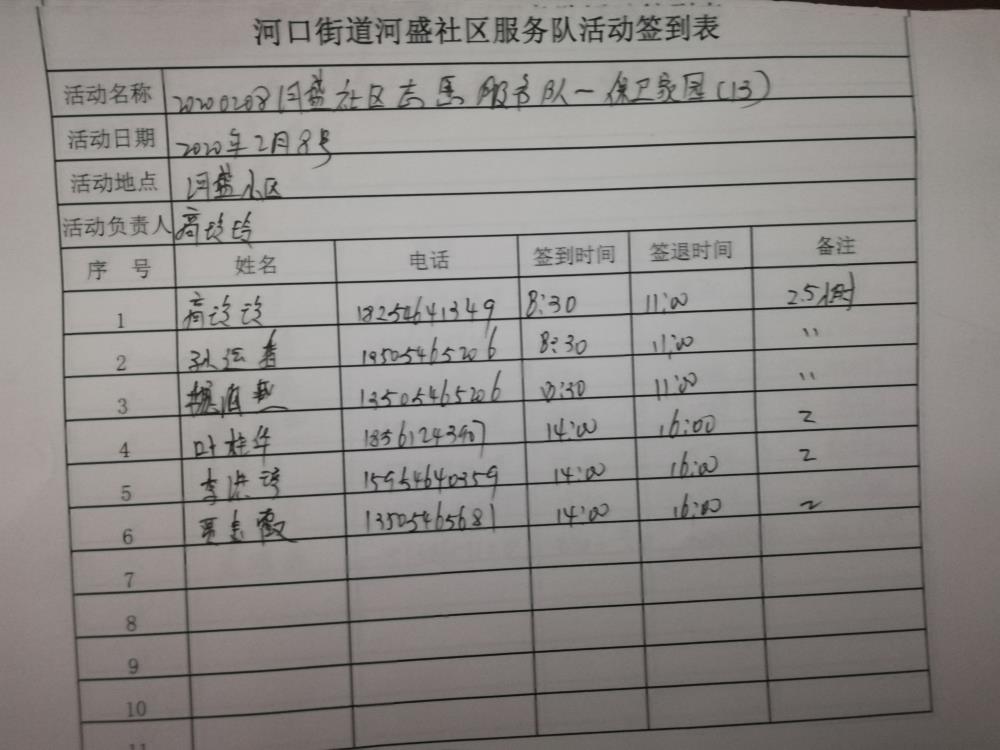 河口街道河盛社区服务队活动签到表
活动名称 20200208河盛社区志愿服务队一保卫家园(13)
活动日期 2020年2月8号
活动地点 河盛小区
活动负责人 高玲玲
序 号 姓名 电话 签到时间 签退时间 备注
1 高玲玲 18254641349 8:30 11:00 2.5小时
2 8:30 11:00 〃
3 13505465206 8:30 11:00 〃
4 叶桂华 14:00 16:00 2
5 15954640359 14:00 16:00 2
6 13505465681 14:00 16:00 2
7
8
9
10
11